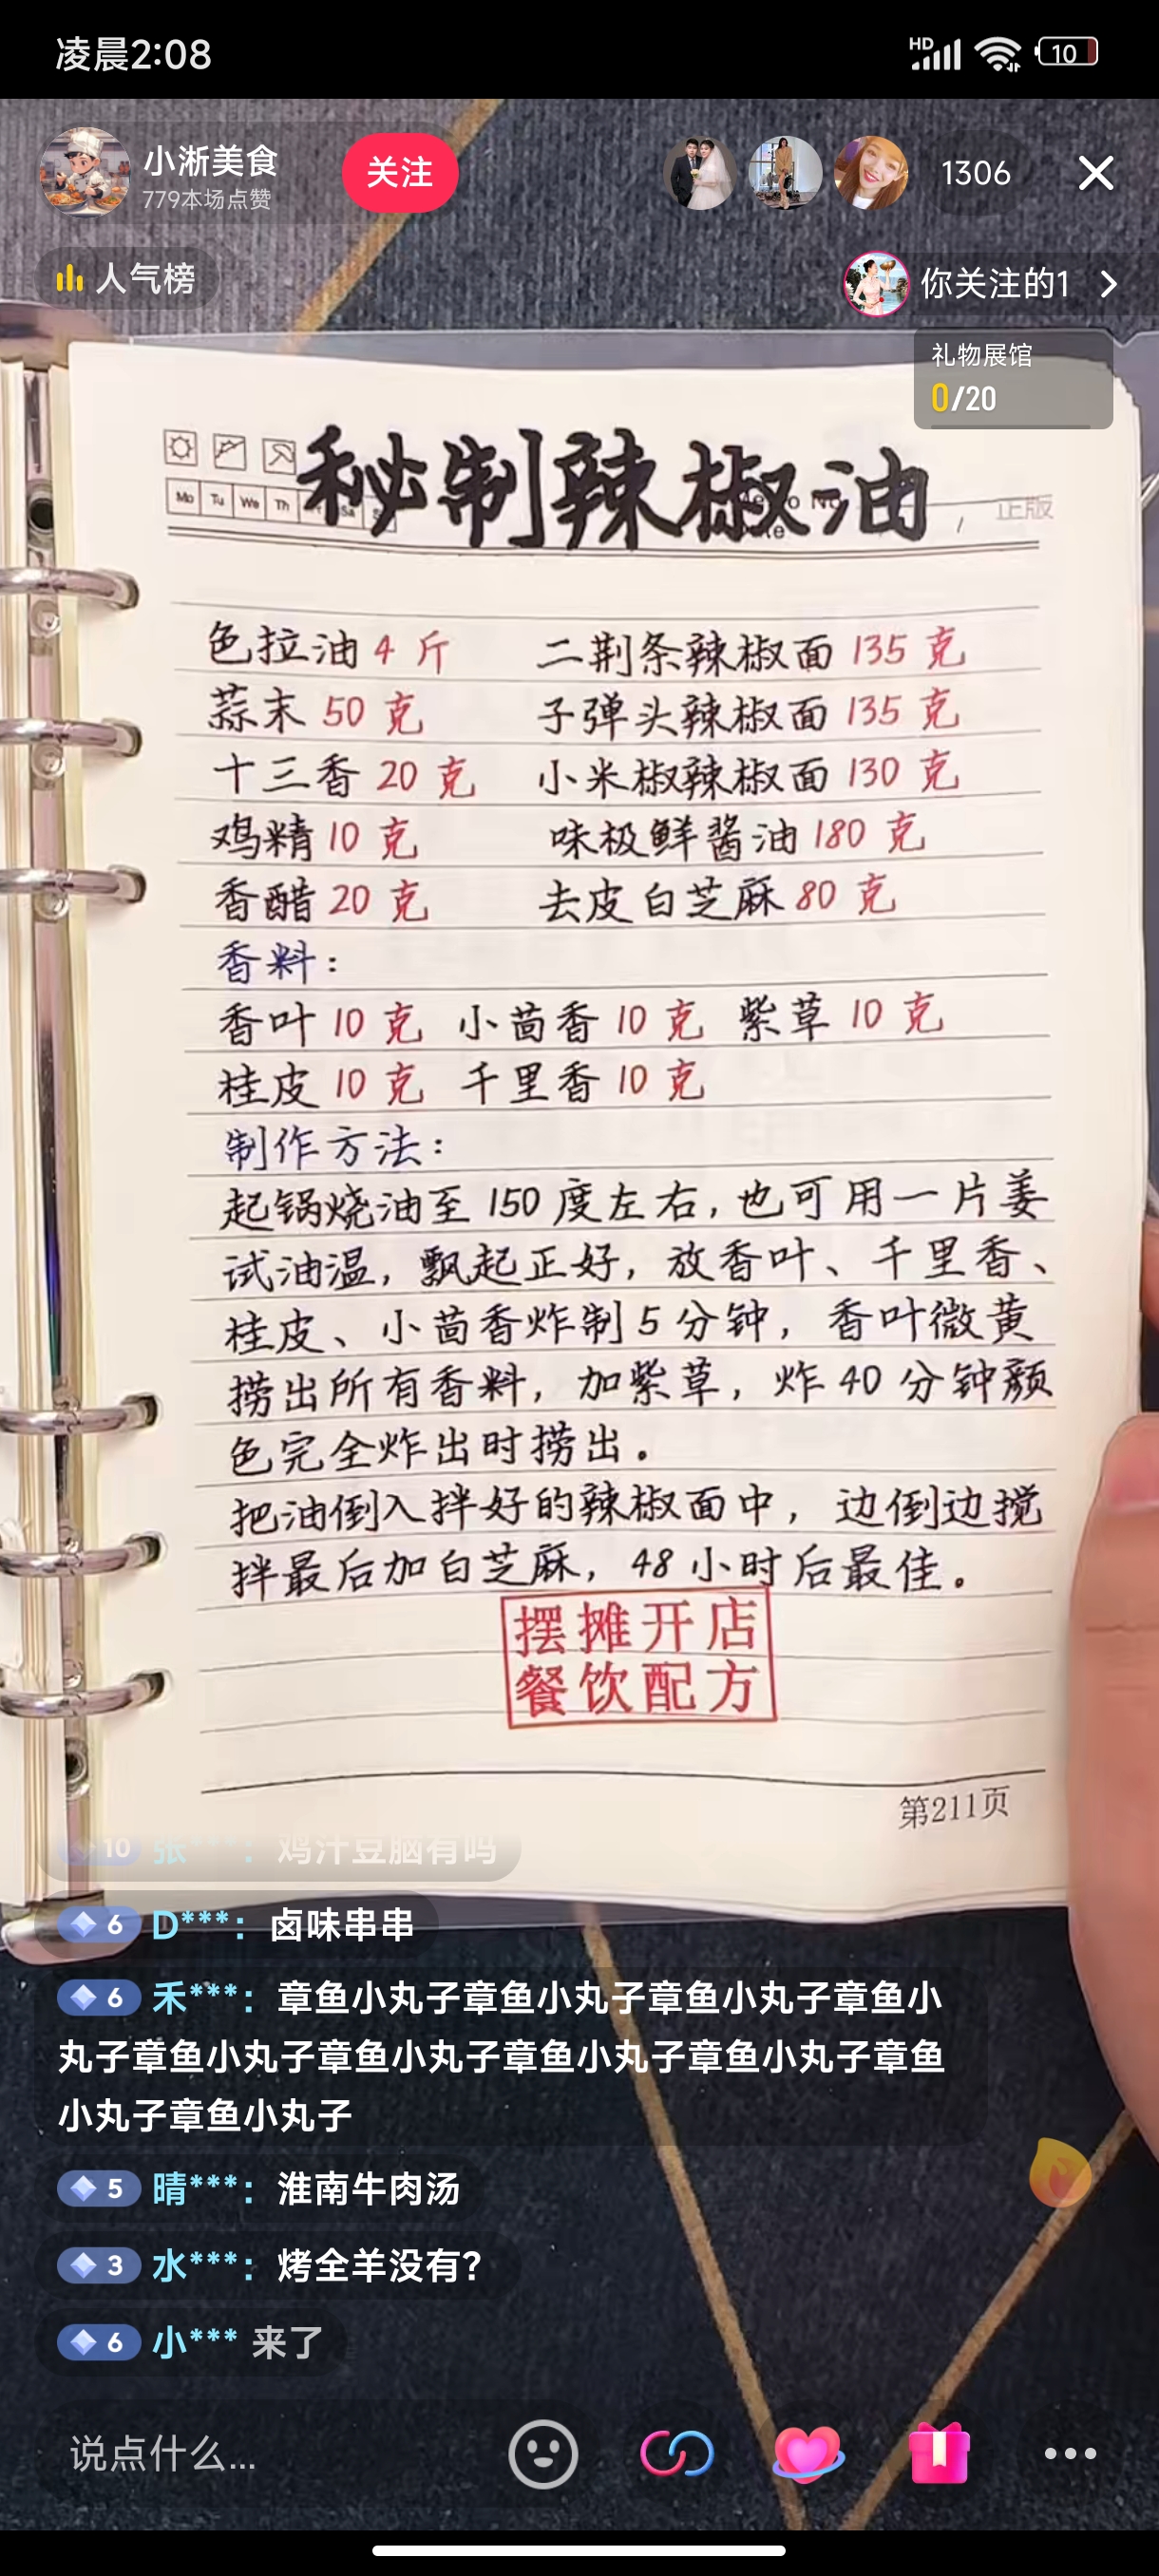 凌晨2:08
HD
10
小淅美食
779本场点赞
关注
1306
人气榜
你关注的1
礼物展馆
0/20
秘制辣椒油
Mo Tu We Th
正版
色拉油 4 斤 二荆条辣椒面 135 克
蒜末 50 克 子弹头辣椒面 135 克
十三香 20 克 小米椒辣椒面 130 克
鸡精 10 克 味极鲜酱油 180 克
香醋 20 克 去皮白芝麻 80 克
香料:
香叶 10 克 小茴香 10 克 紫草 10 克
桂皮 10 克 千里香 10 克
制作方法:
起锅烧油至 150 度左右,也可用一片姜
试油温,飘起正好,放香叶、千里香、
桂皮、小茴香炸制 5 分钟,香叶微黄
捞出所有香料,加紫草,炸 40 分钟颜
色完全炸出时捞出。
把油倒入拌好的辣椒面中,边倒边搅
拌最后加白芝麻,48 小时后最佳。
摆摊开店
餐饮配方
第211页
10 张***: 鸡汁豆脑有吗
6 D***: 卤味串串
6 禾***: 章鱼小丸子章鱼小丸子章鱼小丸子章鱼小
丸子章鱼小丸子章鱼小丸子章鱼小丸子章鱼小丸子章鱼
小丸子章鱼小丸子
5 晴***: 淮南牛肉汤
3 水***: 烤全羊没有?
6 小*** 来了
说点什么...